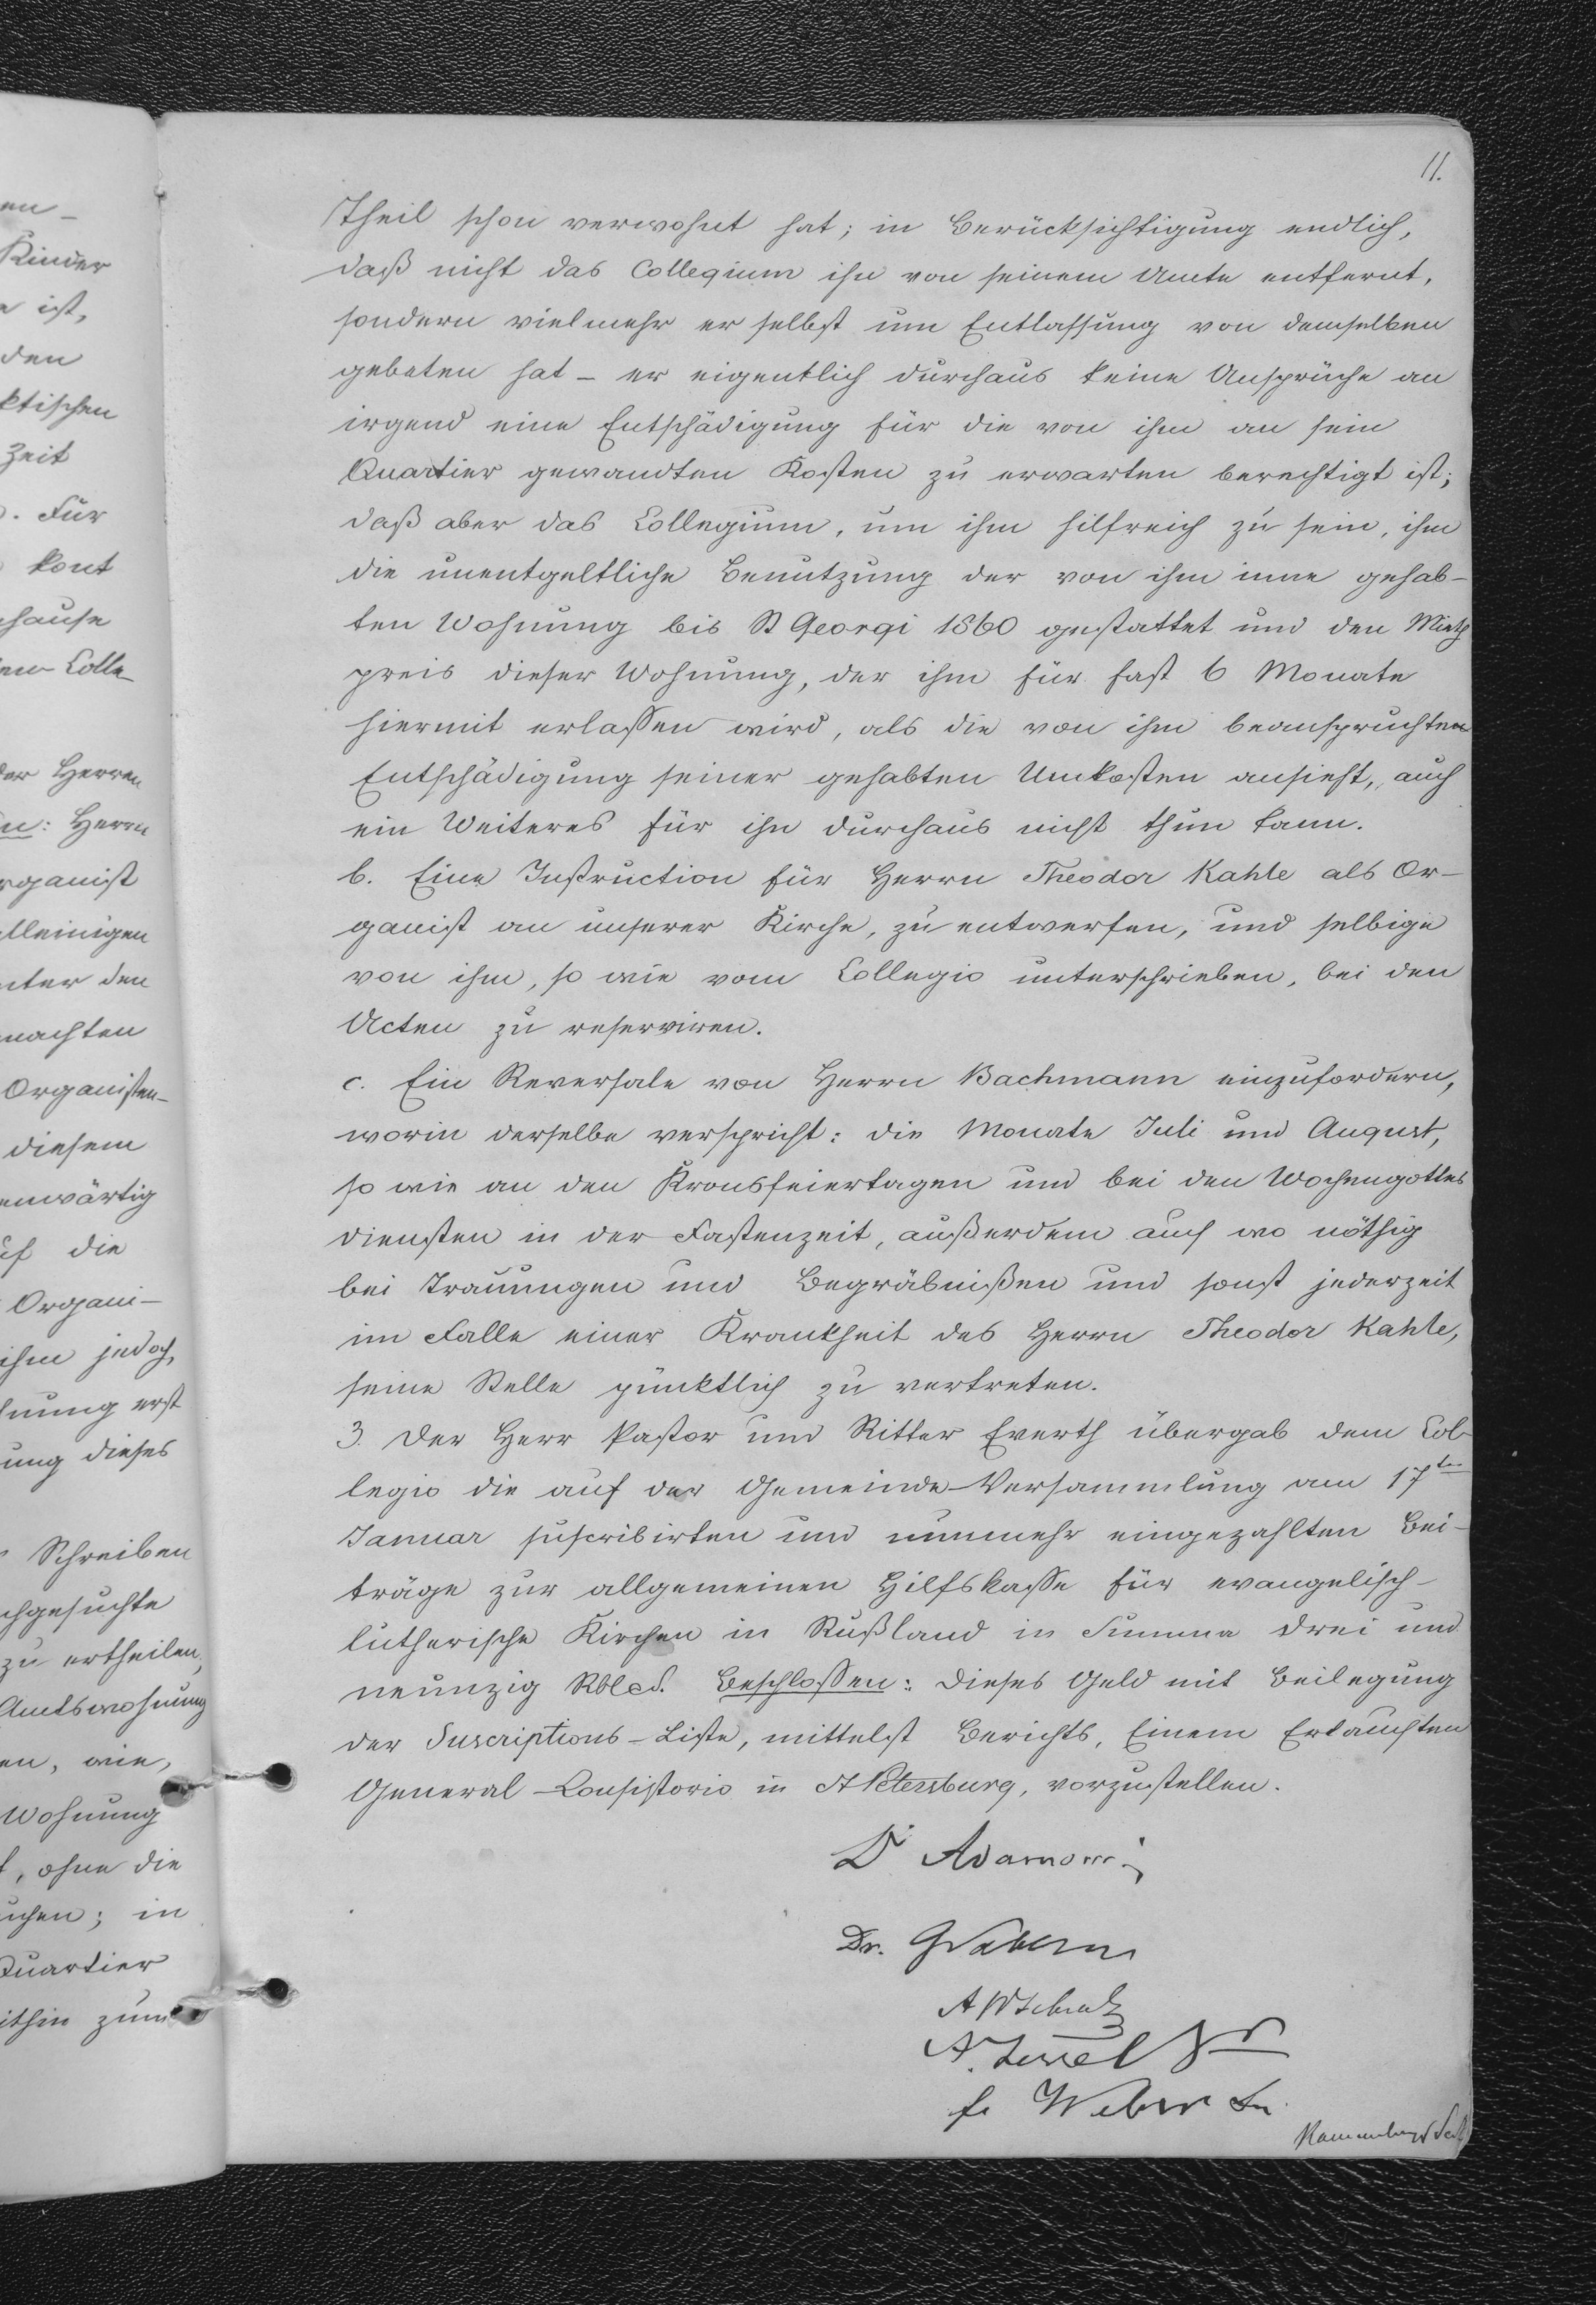 en-
Kinder
ist,
den
ktischen
Zeit
. Für
kont
hause
Colle-
der Herren
en: Herrn
rganist
lleinigen
nter den
machten
Organisten-
diesem
enwärtig
uf die
Organi-
ihm jedoch,
hnung erst
ung dieses
Schreiben
chgesuchte
zu ertheilen,
Amtswohnung
en, wie,
Wohnung
, ohne die
uchen; in
Quartier
ithin zum
11.
Theil schon verwohnt hat; in Berücksichtigung endlich,
daß nicht das Collegium ihn von seinem Amte entfernt,
sondern vielmehr er selbst um Entlassung von demselben
gebeten hat – er eigentlich durchaus keine Ansprüche an
irgend eine Entschädigung für die von ihm an sein
Quartier gewandten Kosten zu erwarten berechtigt ist;
daß aber das Collegium, um ihm hilfreich zu sein, ihm
die unentgeltliche Benutzung der von ihm inne gehab-
ten Wohnung bis St Georgi 1860 gestattet und den Mieth
preis dieser Wohnung, der ihm für fast 6 Monate
hiermit erlaßen wird, als die von ihm beanspruchten
Entschädigung seiner gehabten Unkosten ansieht, auch
ein Weiteres für ihn durchaus nicht thun kann.
b. Eine Instruction für Herrn Theodor Kahle als Or-
ganist an unserer Kirche, zu entwerfen, und selbige
von ihm, so wie vom Collegio unterschrieben, bei den
Acten zu reserviren.
c. Ein Reversale von Herrn Bachmann einzufordern,
worin derselbe verspricht: die Monate Juli und August,
so wie an den Kronsfeiertagen und bei den Wochengottes
diensten in der Fastenzeit, außerdem auch wo nöthig
bei Trauungen und Begräbnißen und sonst jederzeit
im Falle einer Krankheit des Herrn Theodor Kahle,
seine Stelle pünktlich zu vertreten.
3. Der Herr Pastor und Ritter Everth übergab dem Col-
legio die auf der Gemeinde-Versammlung am 17ten
Januar suscribirten und nunmehr eingezahlten Bei-
träge zur allgemeinen Hilfskaße für evangelisch-
lutherische Kirchen in Rußland in Summa drei und
neunzig Rbl S. Beschloßen: dieses Geld mit Beilegung
der Suscriptions-Liste, mittelst Berichts, Einem Erlauchten
General-Consistorio in St Petersburg, vorzustellen.
Dr
Dr.
A
A.
Weber